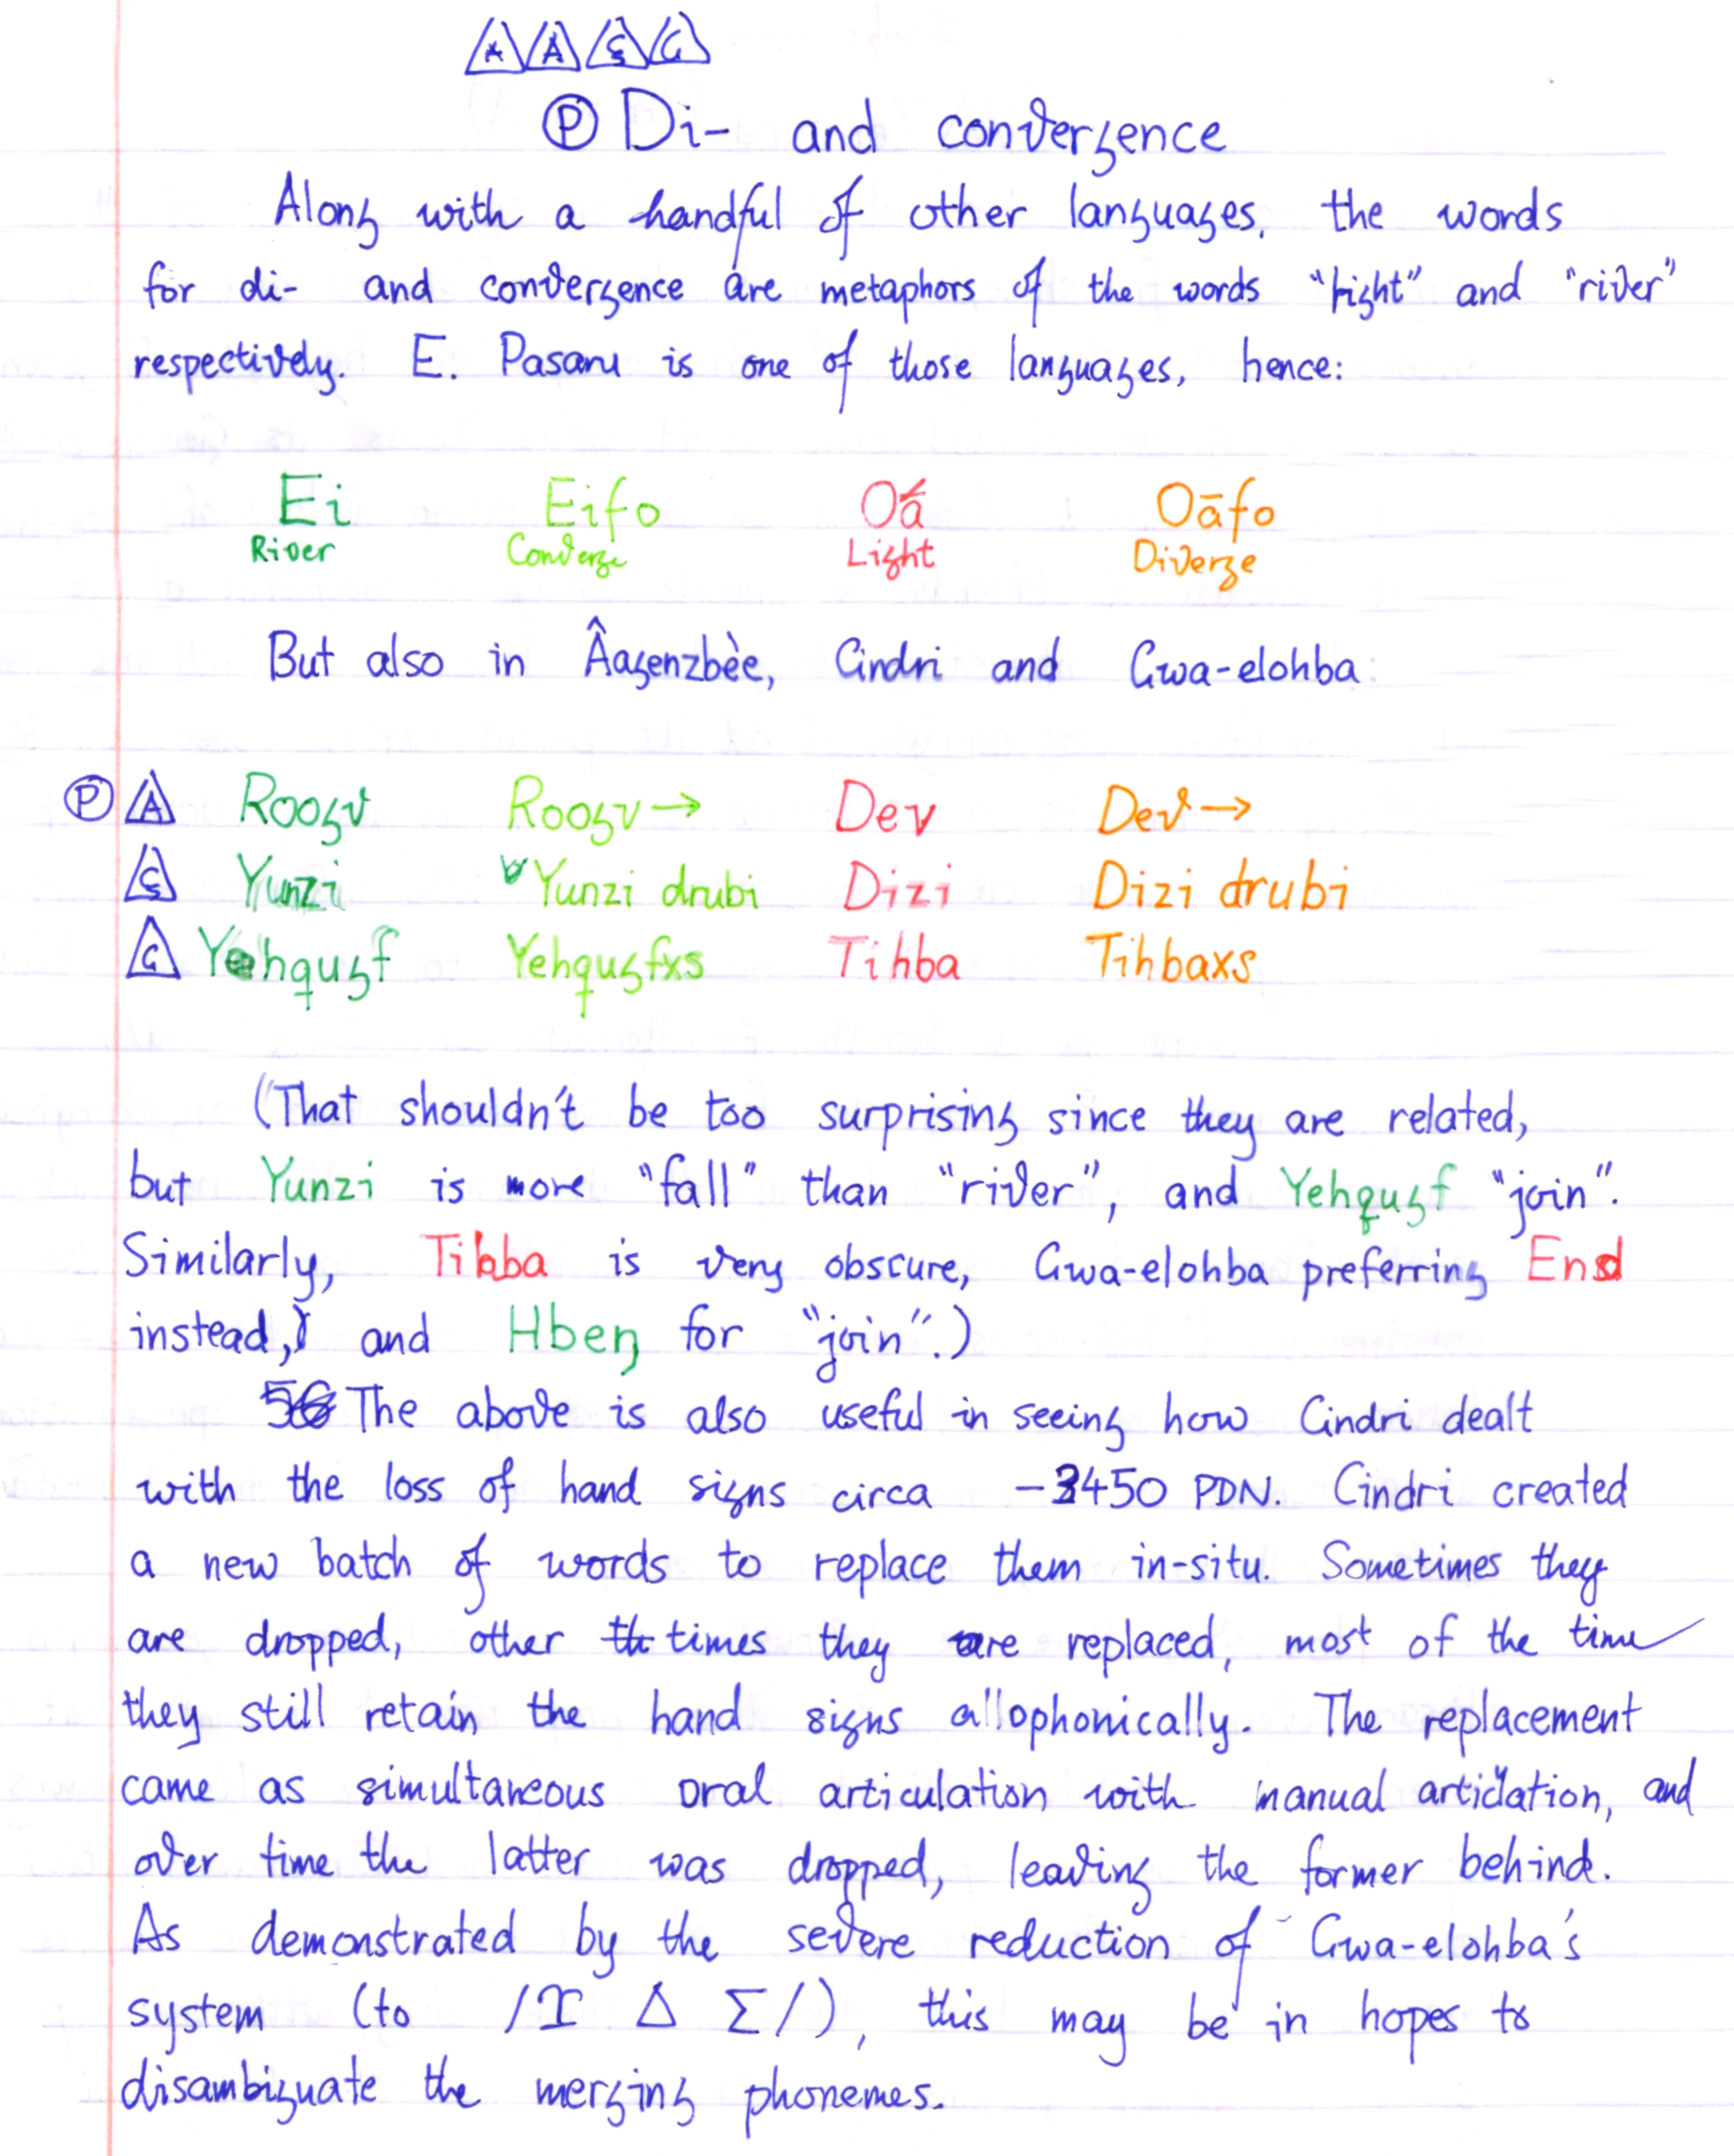 A A Ç G
P Di- and convergence
Along with a handful of other languages, the words
for di- and convergence are metaphors of the words "light" and "river"
respectively. E. Pasaru is one of those languages, hence:
Ei Eifo Oā Oāfo
River Converge Light Diverge
But also in Âagenzbèe, Cindri and Gwa-elohba:
P A Roogv Roogv→ Dev Dev→
Ç Yunzi Yunzi drubi Dizi Dizi drubi
G Yehqugf Yehqugfxs Tihba Tihbaxs
(That shouldn't be too surprising since they are related,
but Yunzi is more "fall" than "river", and Yehqugf "join".
Similarly, Tihba is very obscure, Gwa-elohba preferring End
instead, and Hbeŋ for "join".)
The above is also useful in seeing how Cindri dealt
with the loss of hand signs circa -3450 PDN. Cindri created
a new batch of words to replace them in-situ. Sometimes they
are dropped, other times they are replaced, most of the time
they still retain the hand signs allophonically. The replacement
came as simultaneous oral articulation with manual articulation, and
over time the latter was dropped, leaving the former behind.
As demonstrated by the severe reduction of Gwa-elohba's
system (to / Δ Σ/), this may be in hopes to
disambiguate the merging phonemes.